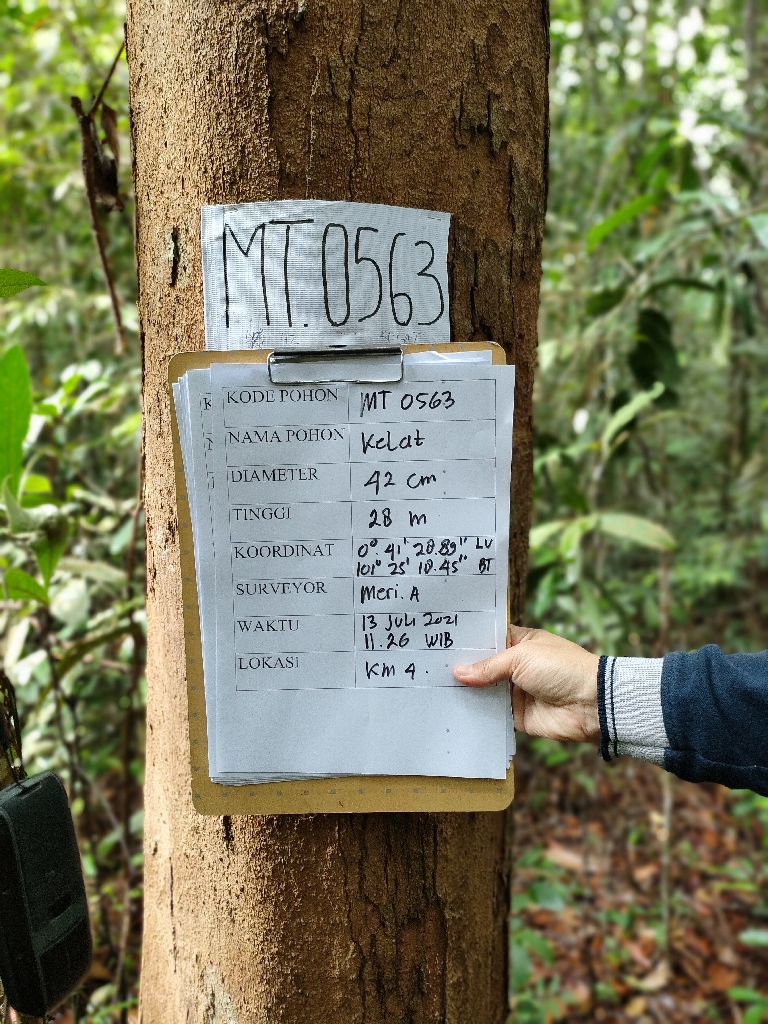 MT.0563
KODE POHON MT 0563
NAMA POHON Kelat
DIAMETER 42 cm
TINGGI 28 m
KOORDINAT 0° 41' 28.89" LU
101° 25' 18.45" BT
SURVEYOR Meri. A
WAKTU 13 Juli 2021
11.26 WIB
LOKASI KM 4.